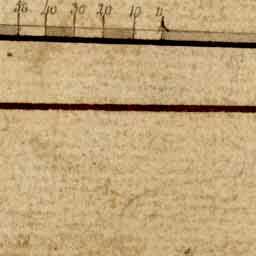 50 40 30 20 10